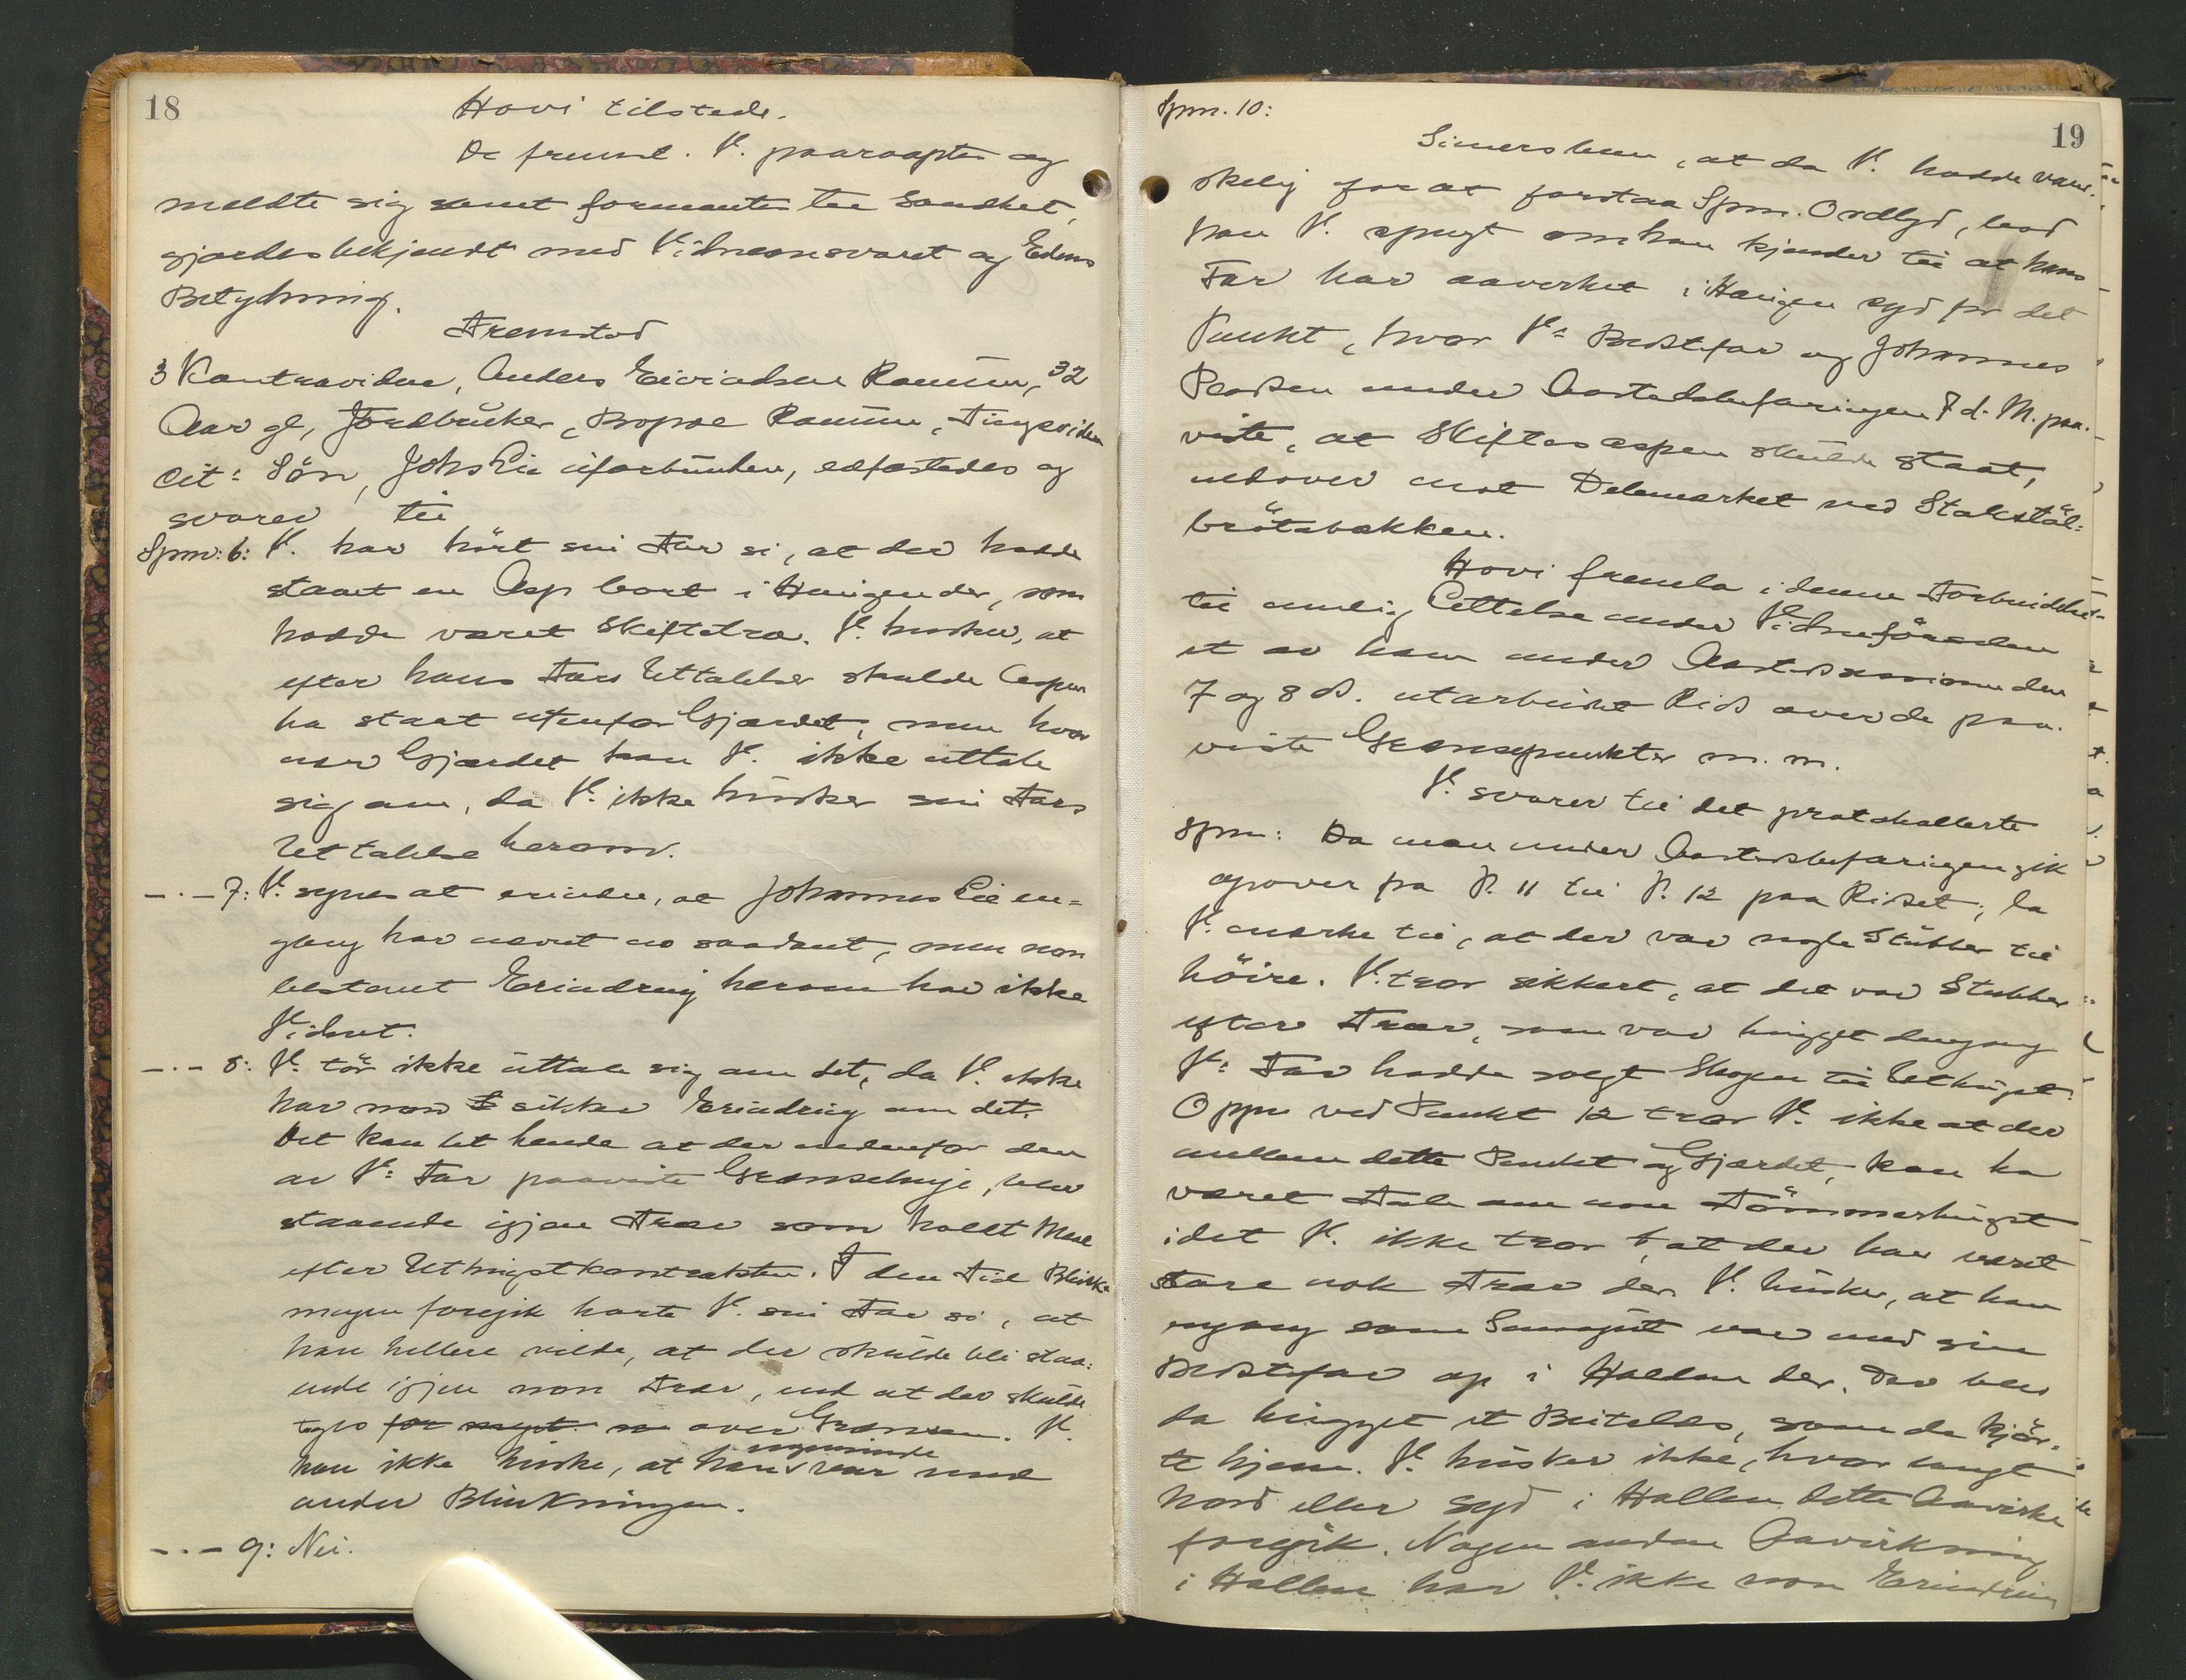 18
Hovi tilstede.
De fremml. V. paaraaptes og
meldte sig samt formantes til Sandhet,
gjordes bekjendt med Vidneansvaret og Edens
Betydning.
Fremstod
3 Kontravidne, Anders Eivindsen Ramum, 32
Aar gl, Jordbruker, Bopæl Ramum, Tingsvidn
Cit: Sön, Johs Lie uforbunden, edfæstedes og
svarer til
Spm: 6: V. har hört sin Far si, at der hadde
staat en Asp bort i Haugen der, som
hadde været Skiftetræ. V. husker, at
efter hans Fars Uttalelser skulde Aspen
ha staat utenfor Gjærdet, men hvor
nær Gjærdet kan V. ikke uttale
sig om, da V. ikke husker sin Fars
Uttalelse herom.
-.- 7: V. synes at erindre, at Johannes Lie en=
gang har nævnt no saadant, men non
bestemt Erindring herom har ikke
Vidnet.
-.- 8: V. tör ikke uttale sig om det, da V. ikke
har non sikker Erindring om det.
Det kan let hende at der nedenfor den
av V: Far paaviste Grænselinje, blev
staaende igjen Trær som holdt Maal
efter Uthugstkontrakten. I den Tid Blink-
ningen foregik hørte V. sin Far si, at
han hellere vilde, at der skulde bli staa:
ende igjen non Trær, end at der skulde
tages for meget over Grænsen. V.
kan ikke huske, at han nogensinde var med
under Blinkningen.
-.- 9: Nei.
19
Spm. 10:
at da V. hadde van-
skelig for at forstaa Spm. Ordlyd, lod
han V. spurgt om han kjender til at hans
Far har aavirket i Haugen syd for det
Punkt, hvor V: Bedstefar og Johannes
under Aastedsbefaringen 7 d. M. paa-
viste, at Skiftesaspen skulde staat,
nedover mot Delemerket ved Stakstöl:
brötabakken.
Hovi fremla i denne Forbindelse
til mulig Lettelse under Vidneförselen
et av ham under Aastedssessionen den
7 og 8 ds. utarbeidet Rids over de paa-
viste Grænsepunkter m. m.
V. svarer til det protokollerte
Spm: Da man under Aastedsbefaringen gik
opover fra P. 11 til P. 12 paa Ridset, la
V. mærke til, at der var nogle Stubber til
höire. V. tror sikkert, at det var Stubber
efter Trær, som var hugget dengang
V: Far hadde solgt Skogen til Uthugst.
Oppe ved Punkt 12 tror V. ikke at der
mellem dette Punkt og Gjærdet, kan ha
været Tale om non Tömmerhugst
idet V. ikke tror, at der har været
store nok Trær der. V. husker, at han
engang som Smaagut var med sin
Bedstefar op i Hallen der. Der blev
da hugget et Beitelæs, som de kjör-
te hjem. V. husker ikke, hvor langt
Nord eller Syd i Hallen dette Aavirke
foregik. Nogen anden Aavirkning
i Hallen har V. ikke non Erindring